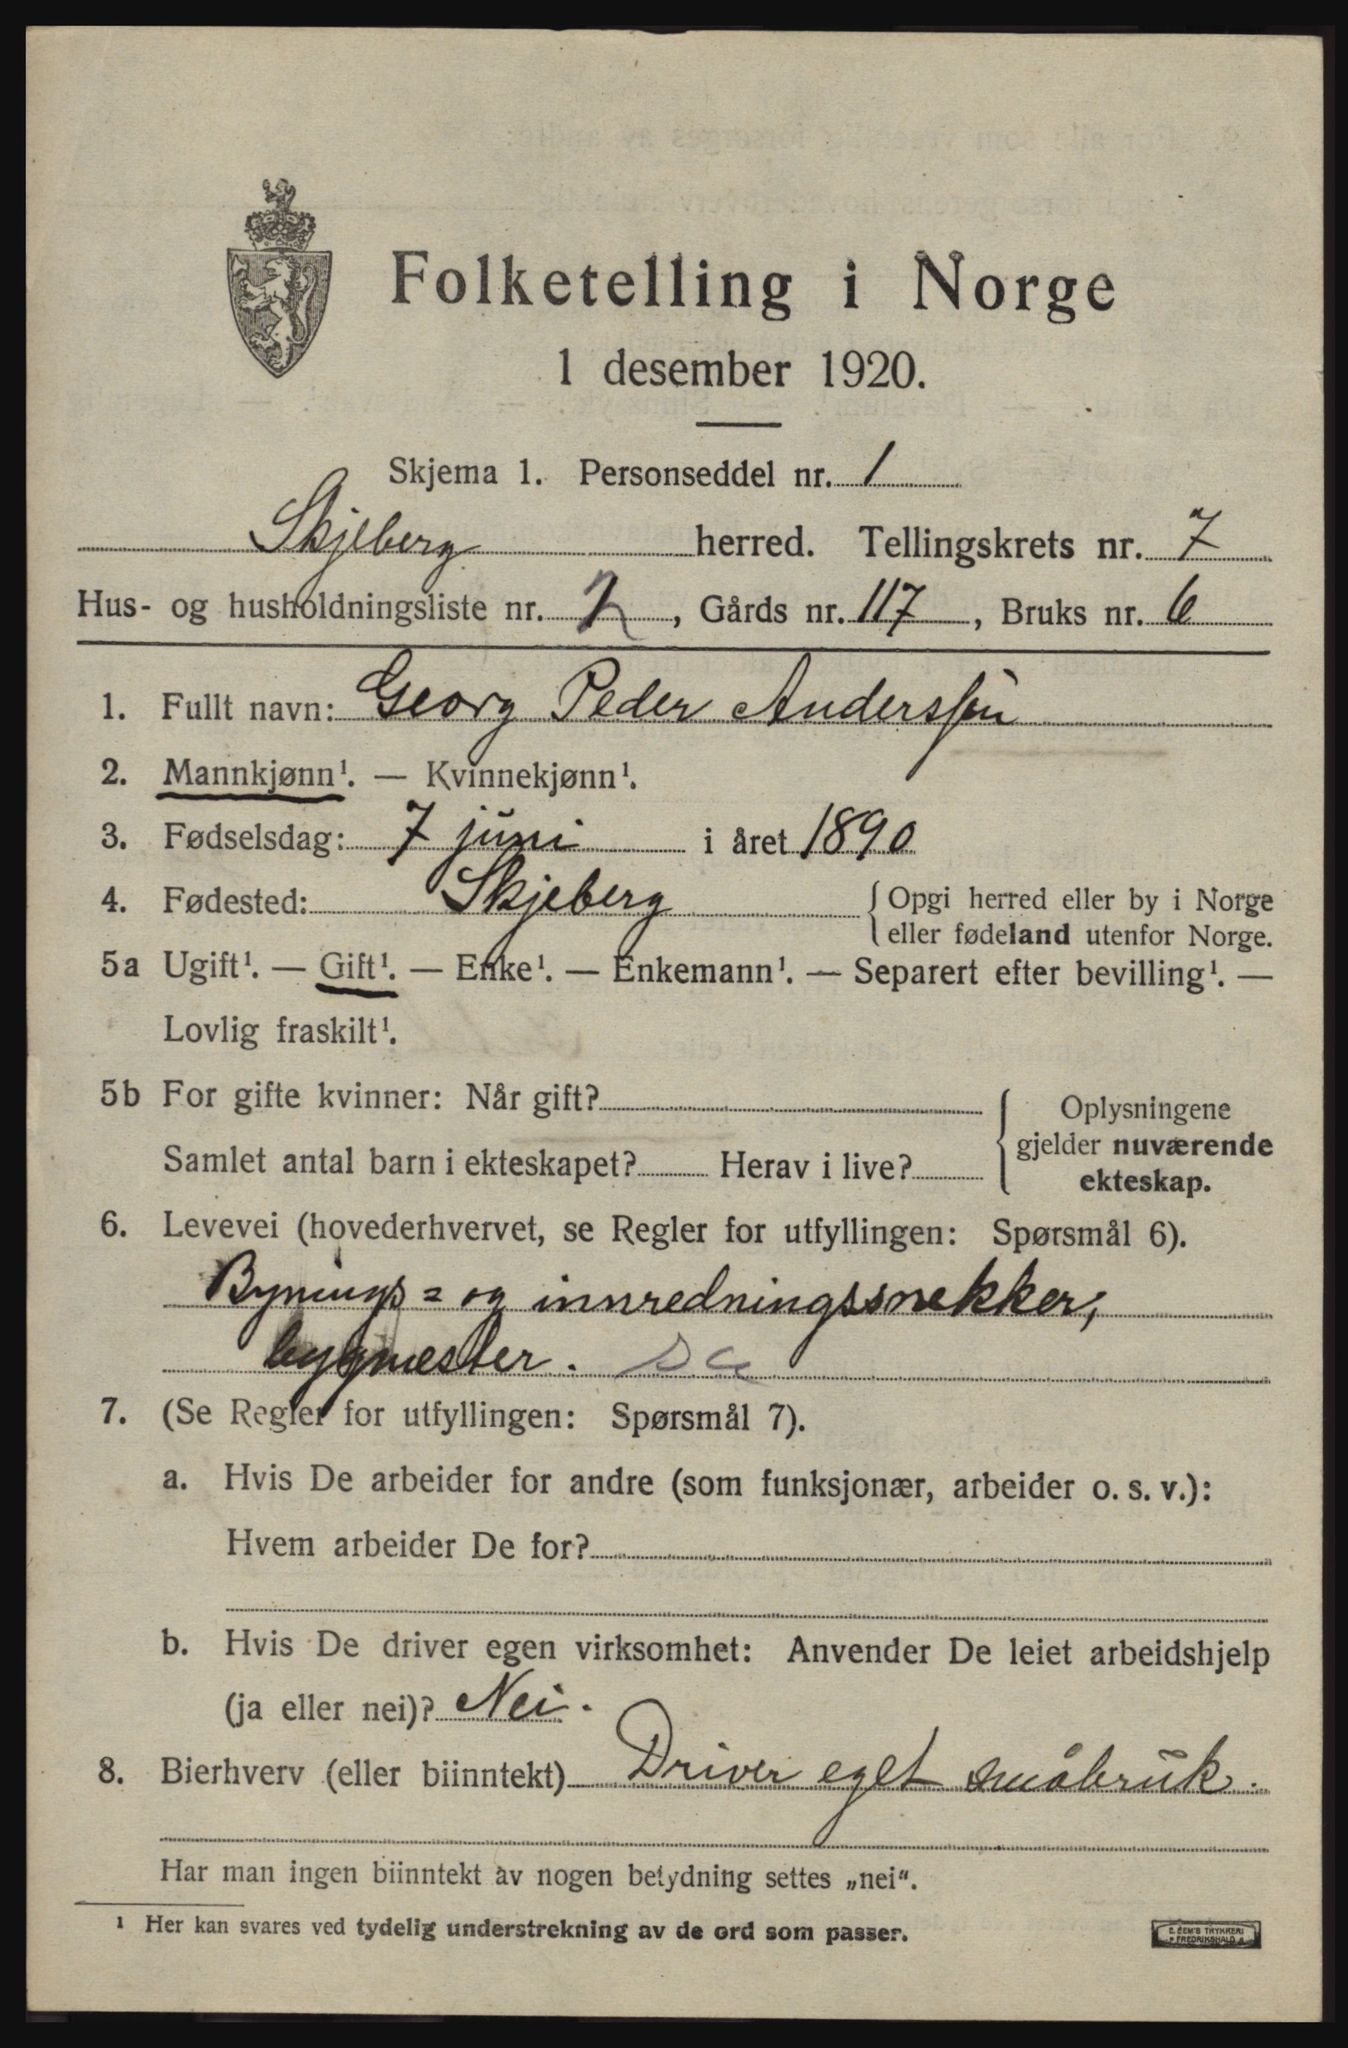 Folketelling i Norge
1 desember 1920.
Skjema 1. Personseddel nr. 1
Skjeberg herred. Tellingskrets nr. 7
Hus- og husholdningsliste nr. 2, Gårds nr. 117, Bruks nr. 6
1. Fullt navn: Georg Peder Anderssen
2. Mannkjønn¹. — Kvinnekjønn¹.
3. Fødselsdag: 7 juni i året 1890
4. Fødested: Skjeberg { Opgi herred eller by i Norge
eller fødeland utenfor Norge.
5a Ugift¹. — Gift¹. — Enke¹. — Enkemann¹. — Separert efter bevilling¹. —
Lovlig fraskilt¹.
5b For gifte kvinner: Når gift?
Samlet antal barn i ekteskapet? Herav i live?
{ Oplysningene
gjelder nuværende
ekteskap.
6. Levevei (hovederhvervet, se Regler for utfyllingen: Spørsmål 6).
Bynings= og innredningssnekker,
bygmester.
7. (Se Regler for utfyllingen: Spørsmål 7).
a. Hvis De arbeider for andre (som funksjonær, arbeider o. s. v.):
Hvem arbeider De for?
b. Hvis De driver egen virksomhet: Anvender De leiet arbeidshjelp
(ja eller nei)? Nei.
8. Bierhverv (eller biinntekt) Driver eget småbruk.
Har man ingen biinntekt av nogen betydning settes „nei“.
¹ Her kan svares ved tydelig understrekning av de ord som passer.
TRYKKERI
FREDRIKSHALD